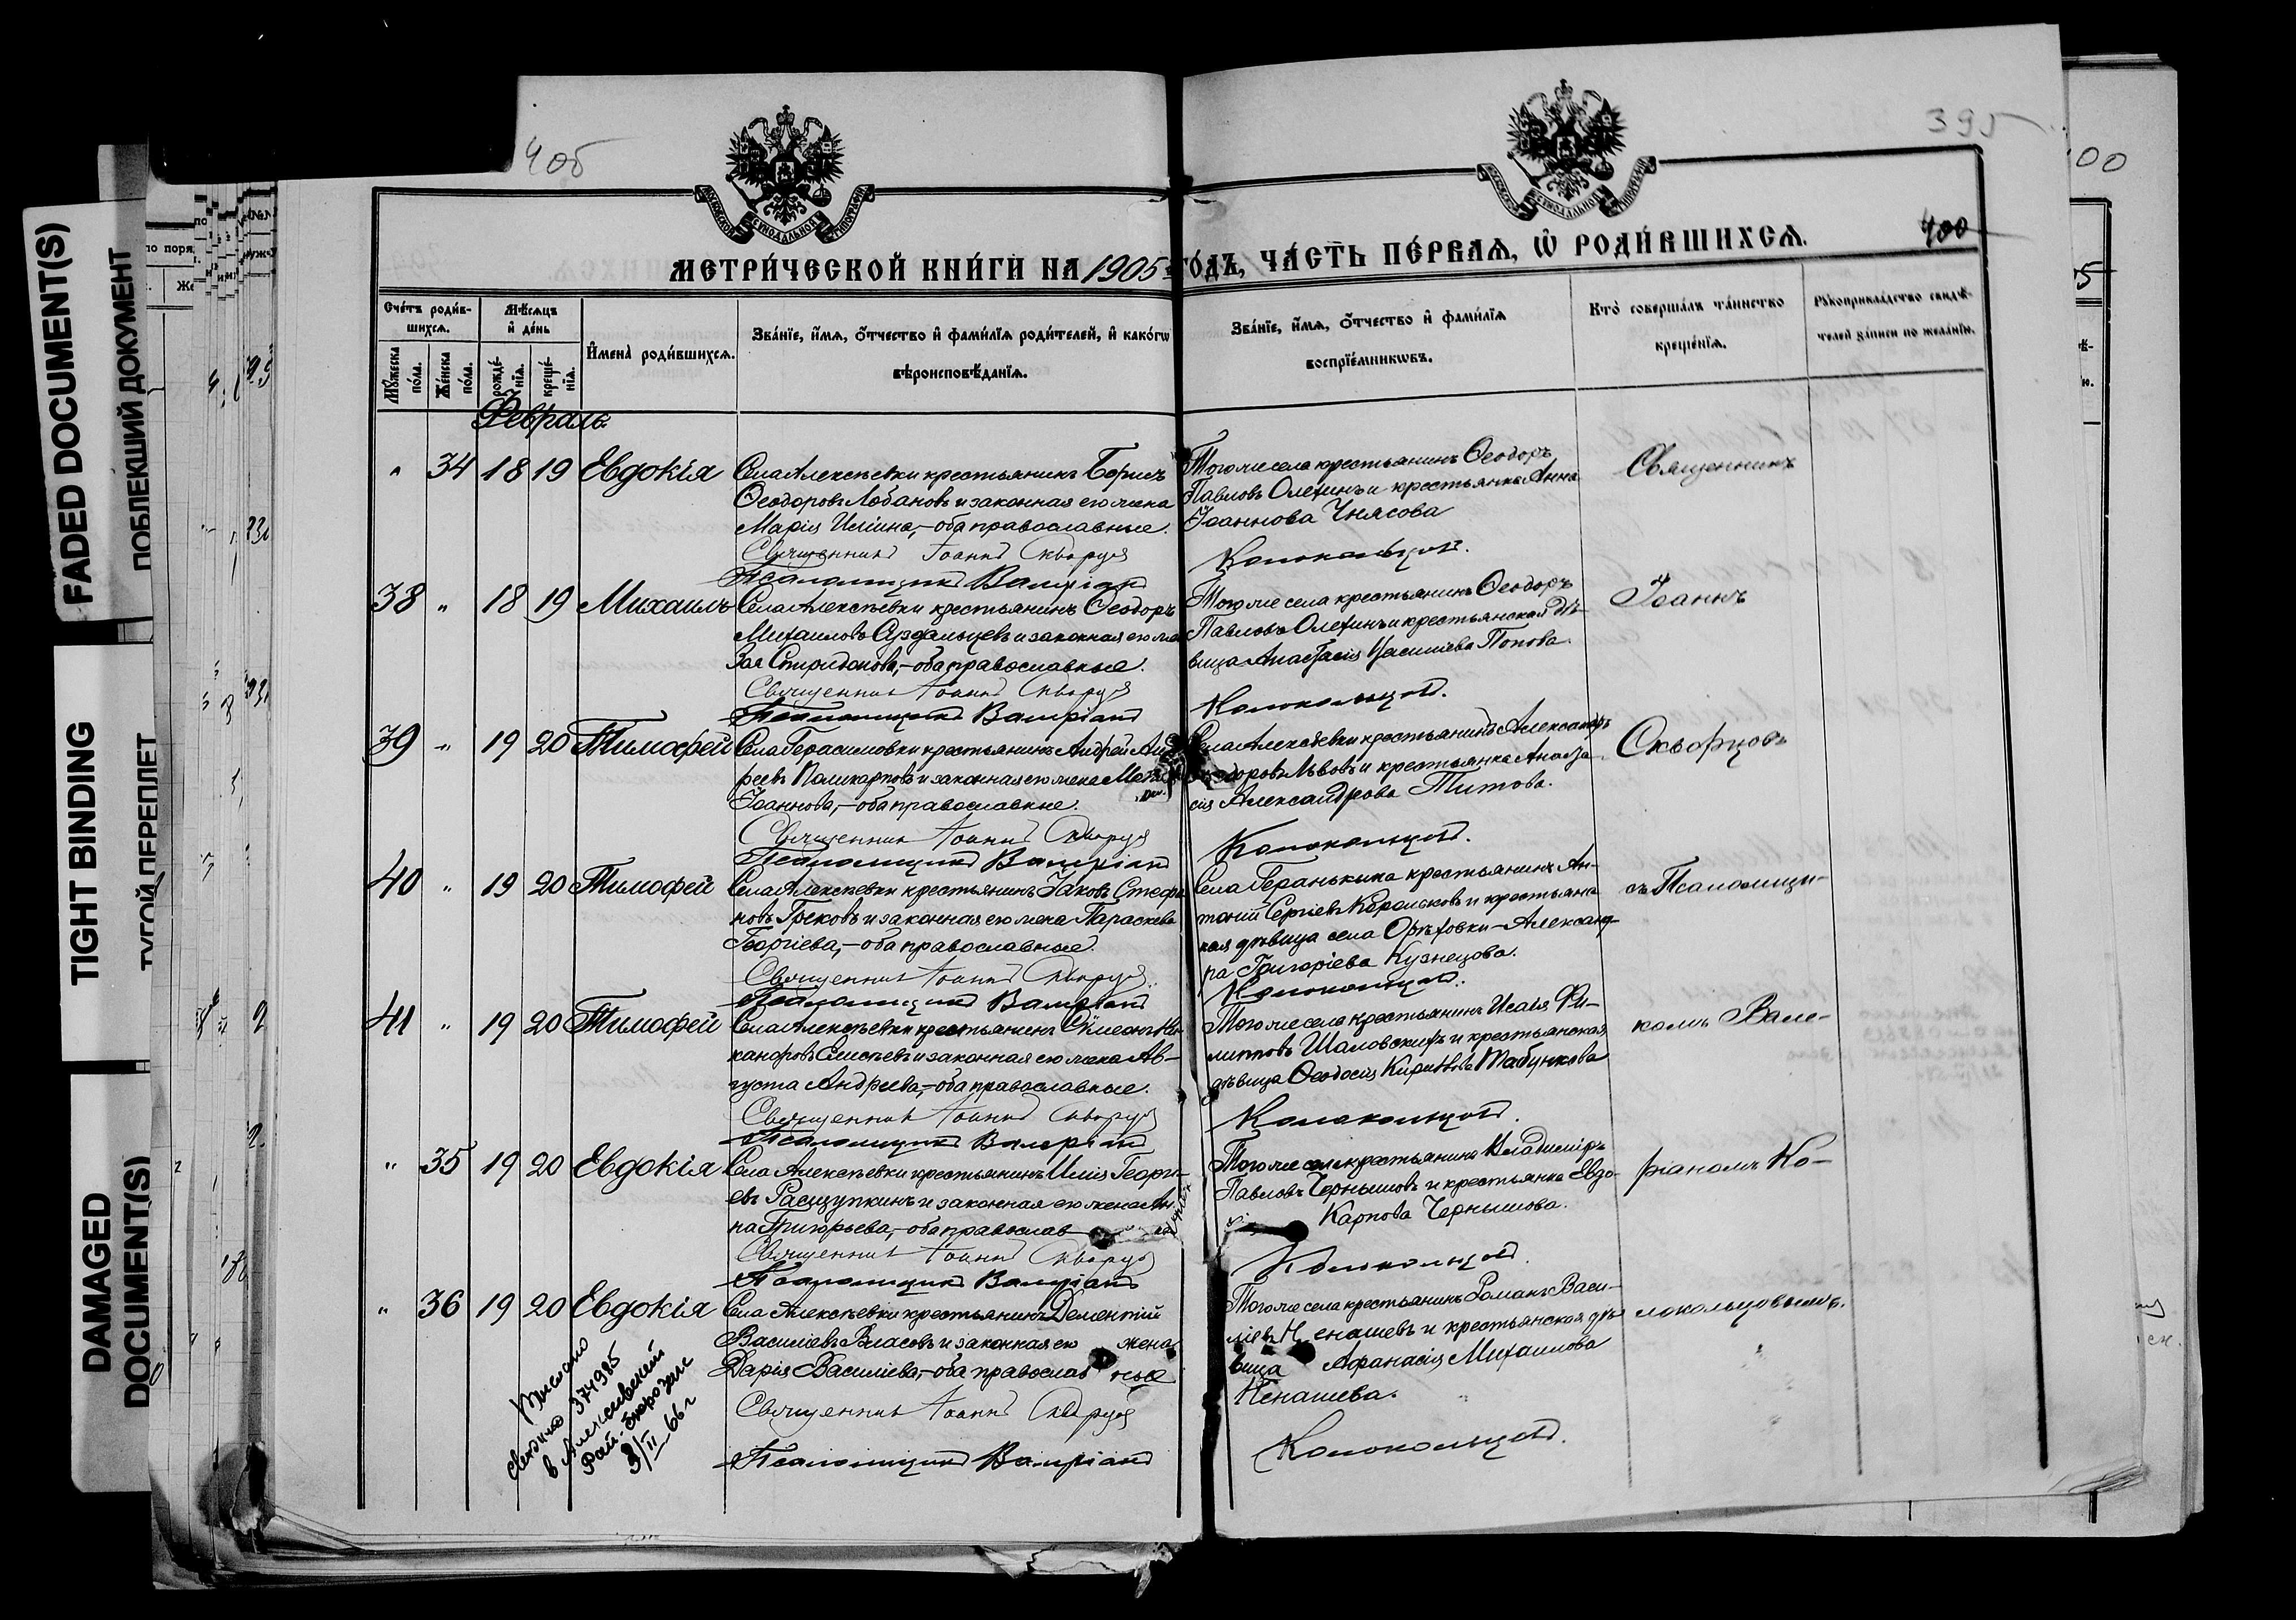 FADED DOCUMENT(S)
ПОБЛЕКШИЙ ДОКУМЕНТ
TIGHT BINDING
ТУГОЙ ПЕРЕПЛЕТ
DAMAGED
DOCUMENT(S)
395
400
МЕТРИ́ЧЕСКОЙ КНИ́ГИ НА 1905 ГО́ДЪ, ЧА́СТЬ ПЕ́РВАѦ, Ѡ҆ РОДИ́ВШИХСѦ.
Сче́тъ роди́в-
шихсѧ.
Мꙋ́жеска по́ла.
Же́нска по́ла.
Мѣ́сѧцъ
и҆ де́нь
рожде́-
нїѧ.
креще́-
нїѧ.
И҆мена̀ роди́вшихсѧ.
Зва́нїе, и҆́мѧ, ѻ҆́тчество и҆ фами́лїѧ роди́телей, и҆ како́гѡ
вѣроисповѣ́данїѧ.
Зва́нїе, и҆́мѧ, ѻ҆́тчество и҆ фами́лїѧ
воспрїе́мникѡвъ.
Кто̀ соверша́лъ та́инство
креще́нїѧ.
Рꙋкоприкла́дство свидѣ́-
телей за́писи по жела́нїю.
Февраль
" 34 18 19 Евдокія
Села Алексѣевки крестьянинъ Борисъ
Ѳеодоровъ Лобановъ и законная его жена
Марія Иліина,-оба православные.
Священникъ Іоаннъ Скворцов
Псаломщикъ Валеріанъ
Тогоже села крестьянинъ Ѳеодоръ
Павловъ Олехинъ и крестьянка Анна
Іоаннова Чиясова
Колокольцовъ.
Священникъ
38 " 18 19 Михаилъ
Села Алексѣевки крестьянинъ Ѳеодоръ
Михаиловъ Суздальцевъ и законная его же
Зоя Спиридонова,-оба православные.
Священникъ Іоаннъ Скворцов
Псаломщикъ Валеріанъ
Тогоже села крестьянинъ Ѳеодоръ
Павловъ Олехинъ и крестьянская дѣ-
вица Анастасія Василіева Попова.
Колокольцовъ.
Іоаннъ
39 " 19 20 Тимофей
Села Герасимовки крестьянинъ Андрей Анд
реевъ Поликарповъ и законная его жена
Іоаннова,-оба православные.
Священникъ Іоаннъ Скворцов
Псаломщикъ Валеріанъ
Села Алексѣевки крестьянинъ Александръ
Ѳеодоровъ Львовъ и крестьянка Анаста-
сія Александрова Титова.
Колокольцовъ.
Скворцовъ
40 " 19 20 Тимофей
Села Алексѣевки крестьянинъ Іаковъ Стефа
новъ Грековъ и законная его жена Параскева
Георгіева,-оба православные.
Священникъ Іоаннъ Скворцов
Псаломщикъ Валеріанъ
Села Гранькина крестьянинъ Ан-
тоній Сергіевъ Корольковъ и крестьянс
кая дѣвица села Орѣховки-Александ-
ра Григоріева Кузнецова.
Колокольцовъ.
съ Псаломщи-
41 " 19 20 Тимофей
Села Алексѣевки крестьянинъ Сѵмеонъ Ни-
каноровъ Елисѣевъ и законная его жена Ав-
густа Андреева,-оба православные.
Священникъ Іоаннъ Скворцов
Псаломщикъ Валеріанъ
Тогоже села крестьянинъ Исаія Фи-
липповъ Шаловскихъ и крестьянская
дѣвица Ѳеодосія Кириллова Табункова
Колокольцовъ.
комъ Вале-
" 35 19 20 Евдокія
Села Алексѣевки крестьянинъ Илія Георгі-
евъ Расщупкинъ и законная его жена Ан-
на Григорьева,-оба православ
Священникъ Іоаннъ Скворцов
Псаломщикъ Валеріанъ
Тогоже села крестьянинъ Владиміръ
Павловъ Чернышовъ и крестьянка Евдо-
Карпова Чернышова.
Колокольцовъ.
ріаномъ Ко-
" 36 19 20 Евдокія
Села Алексѣевки крестьянинъ Дементій
Василіевъ Власовъ и законная его жена
Дарія Василіева,-оба православ ные
Священникъ Іоаннъ Скворцов
Псаломщикъ Валеріанъ
Тогоже села крестьянинъ Романъ Васи-
ліевъ Ненашевъ и крестьянская дѣ-
вица Афанасія Михаилова
Ненашева.
Колокольцовъ.
локольцовымъ.
Выслано
свед. на 374985
в Алексеевский
Рай.
3/II 66 г